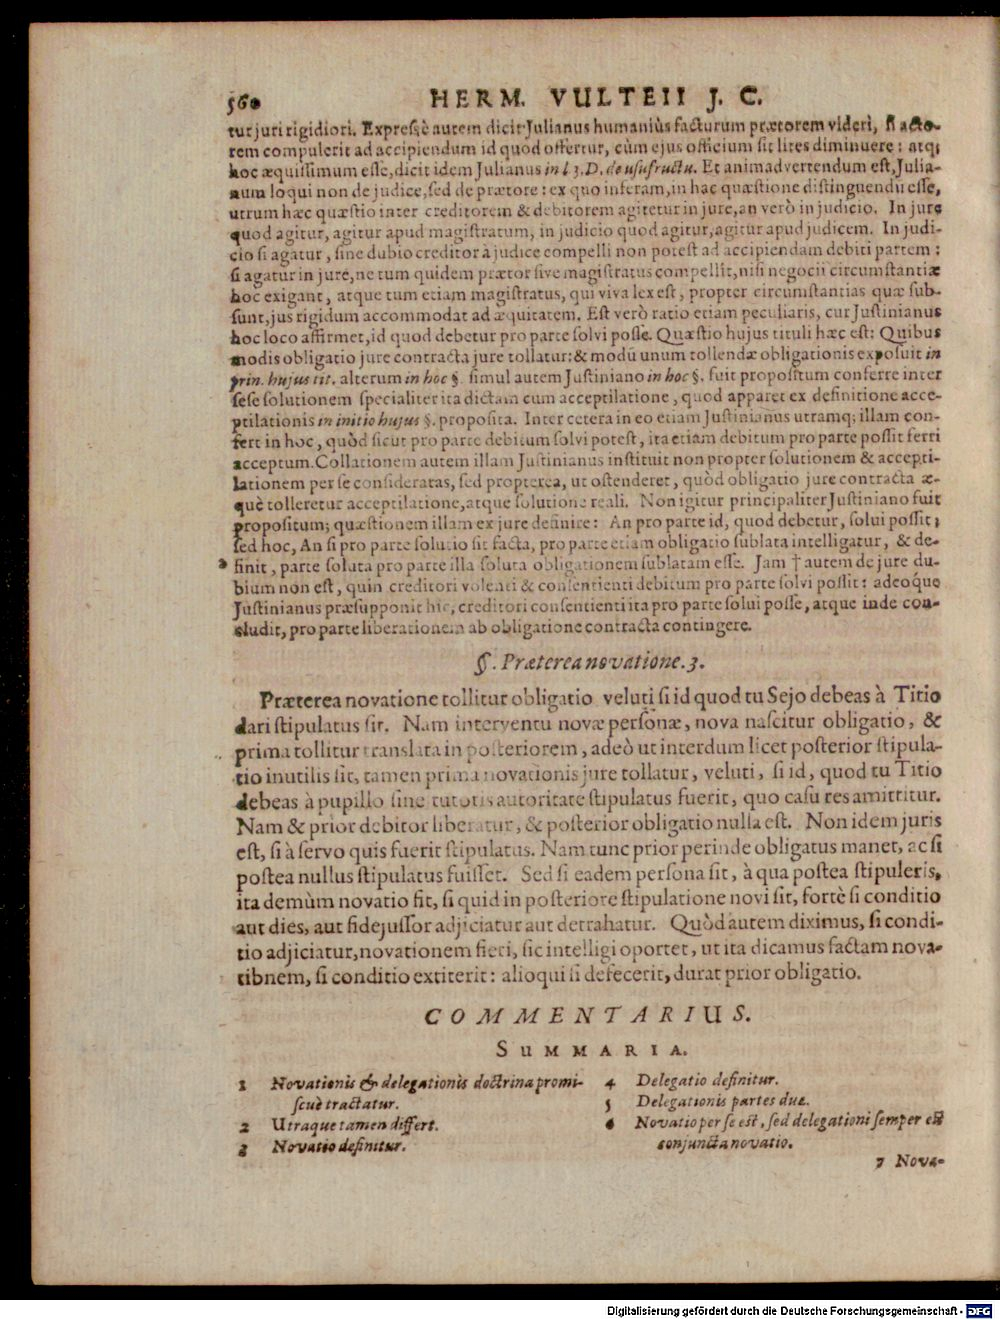 560 HERM. VULTEII J. C.
tur juri rigidiori. Expresſè autem dicit Julianus humaniùs facturum prætorem videri, ſi acto-
rem compulerit ad accipiendum id quod offertur, cùm ejus officium ſit lites diminuere: atq;
hoc æquiſſimum eſſe, dicit idem Julianus in l 3. D. de uſufructu. Et animadvertendum eſt, Julia-
num loqui non de judice, ſed de prætore: ex quo inferam, in hac quæſtione diſtinguendū eſſe,
utrum hæc quæſtio inter creditorem & debitorem agitetur in jure, an verò in judicio. In jure
quod agitur, agitur apud magiſtratum, in judicio quod agitur, agitur apud judicem. In judi-
cio ſi agatur, ſine dubio creditor à judice compelli non poteſt ad accipiendam debiti partem:
ſi agatur in jure, ne tum quidem prætor ſive magiſtratus compellit, niſi negocii circumſtantiæ
hoc exigant, atque tum etiam magiſtratus, qui viva lex eſt, propter circumſtantias quæ ſub-
ſunt, jus rigidum accommodat ad æquitatem. Eſt verò ratio etiam peculiaris, cur Juſtinianus
hoc loco affirmet, id quod debetur pro parte ſolvi poſſe. Quæſtio hujus tituli hæc eſt: Quibus
modis obligatio jure contracta jure tollatur: & modū unum tollendæ obligationis expoſuit in
prin. hujus tit. alterum in hoc §. ſimul autem Juſtiniano in hoc §. fuit propoſitum conferre inter
ſeſe ſolutionem ſpecialiter ita dictam cum acceptilatione, quod apparet ex definitione acce-
ptilationis in initio hujus §. propoſita. Inter cetera in eo etiam Juſtinianus utramq; illam con-
fert in hoc, quòd ſicut pro parte debitum ſolvi poteſt, ita etiam debitum pro parte poſſit ferri
acceptum. Collationem autem illam Juſtinianus inſtituit non propter ſolutionem & accepti-
lationem per ſe conſideratas, ſed propterea, ut oſtenderet, quòd obligatio jure contracta æ-
què tolleretur acceptilatione, atque ſolutione reali. Non igitur principaliter Juſtiniano fuit
propoſitum; quæſtionem illam ex jure definire: An pro parte id, quod debetur, ſolui poſſit;
ſed hoc, An ſi pro parte ſolutio ſit facta, pro parte etiam obligatio ſublata intelligatur, & de-
finit, parte ſoluta pro parte illa ſoluta obligationem ſublatam eſſe. Jam † autem de jure du-
bium non eſt, quin creditori volenti & conſentienti debitum pro parte ſolvi poſſit: adeoque
Juſtinianus præſupponit hic, creditori conſentienti ita pro parte ſolui poſſe, atque inde con-
cludit, pro parte liberationem ab obligatione contracta contingere.
§. Præterea novatione. 3.
Præterea novatione tollitur obligatio veluti ſi id quod tu Sejo debeas à Titio
dari ſtipulatus ſit. Nam interventu novæ perſonæ, nova naſcitur obligatio, &
prima tollitur translata in poſteriorem, adeò ut interdum licet poſterior ſtipula-
tio inutilis ſit, tamen prima novationis jure tollatur, veluti, ſi id, quod tu Titio
debeas à pupillo ſine tutoris autoritate ſtipulatus fuerit, quo caſu res amittitur.
Nam & prior debitor liberatur, & poſterior obligatio nulla eſt. Non idem juris
eſt, ſi à ſervo quis fuerit ſtipulatus. Nam tunc prior perinde obligatus manet, ac ſi
poſtea nullus ſtipulatus fuiſſet. Sed ſi eadem perſona ſit, à qua poſtea ſtipuleris,
ita demùm novatio fit, ſi quid in poſteriore ſtipulatione novi ſit, fortè ſi conditio
aut dies, aut fidejuſſor adjiciatur aut detrahatur. Quòd autem diximus, ſi condi-
tio adjiciatur, novationem fieri, ſic intelligi oportet, ut ita dicamus factam nova-
tionem, ſi conditio extiterit: alioqui ſi defecerit, durat prior obligatio.
COMMENTARIUS.
SUMMARIA.
1 Novationis & delegationis doctrina promi-
ſcuè tractatur.
2 Utraque tamen differt.
3 Novatio definitur.
4 Delegatio definitur.
5 Delegationis partes duæ.
6 Novatio per ſe eſt, ſed delegationi ſemper eſt
conjuncta novatio.
7 Nova-
Digitalisierung gefördert durch die Deutsche Forschungsgemeinschaft - DFG